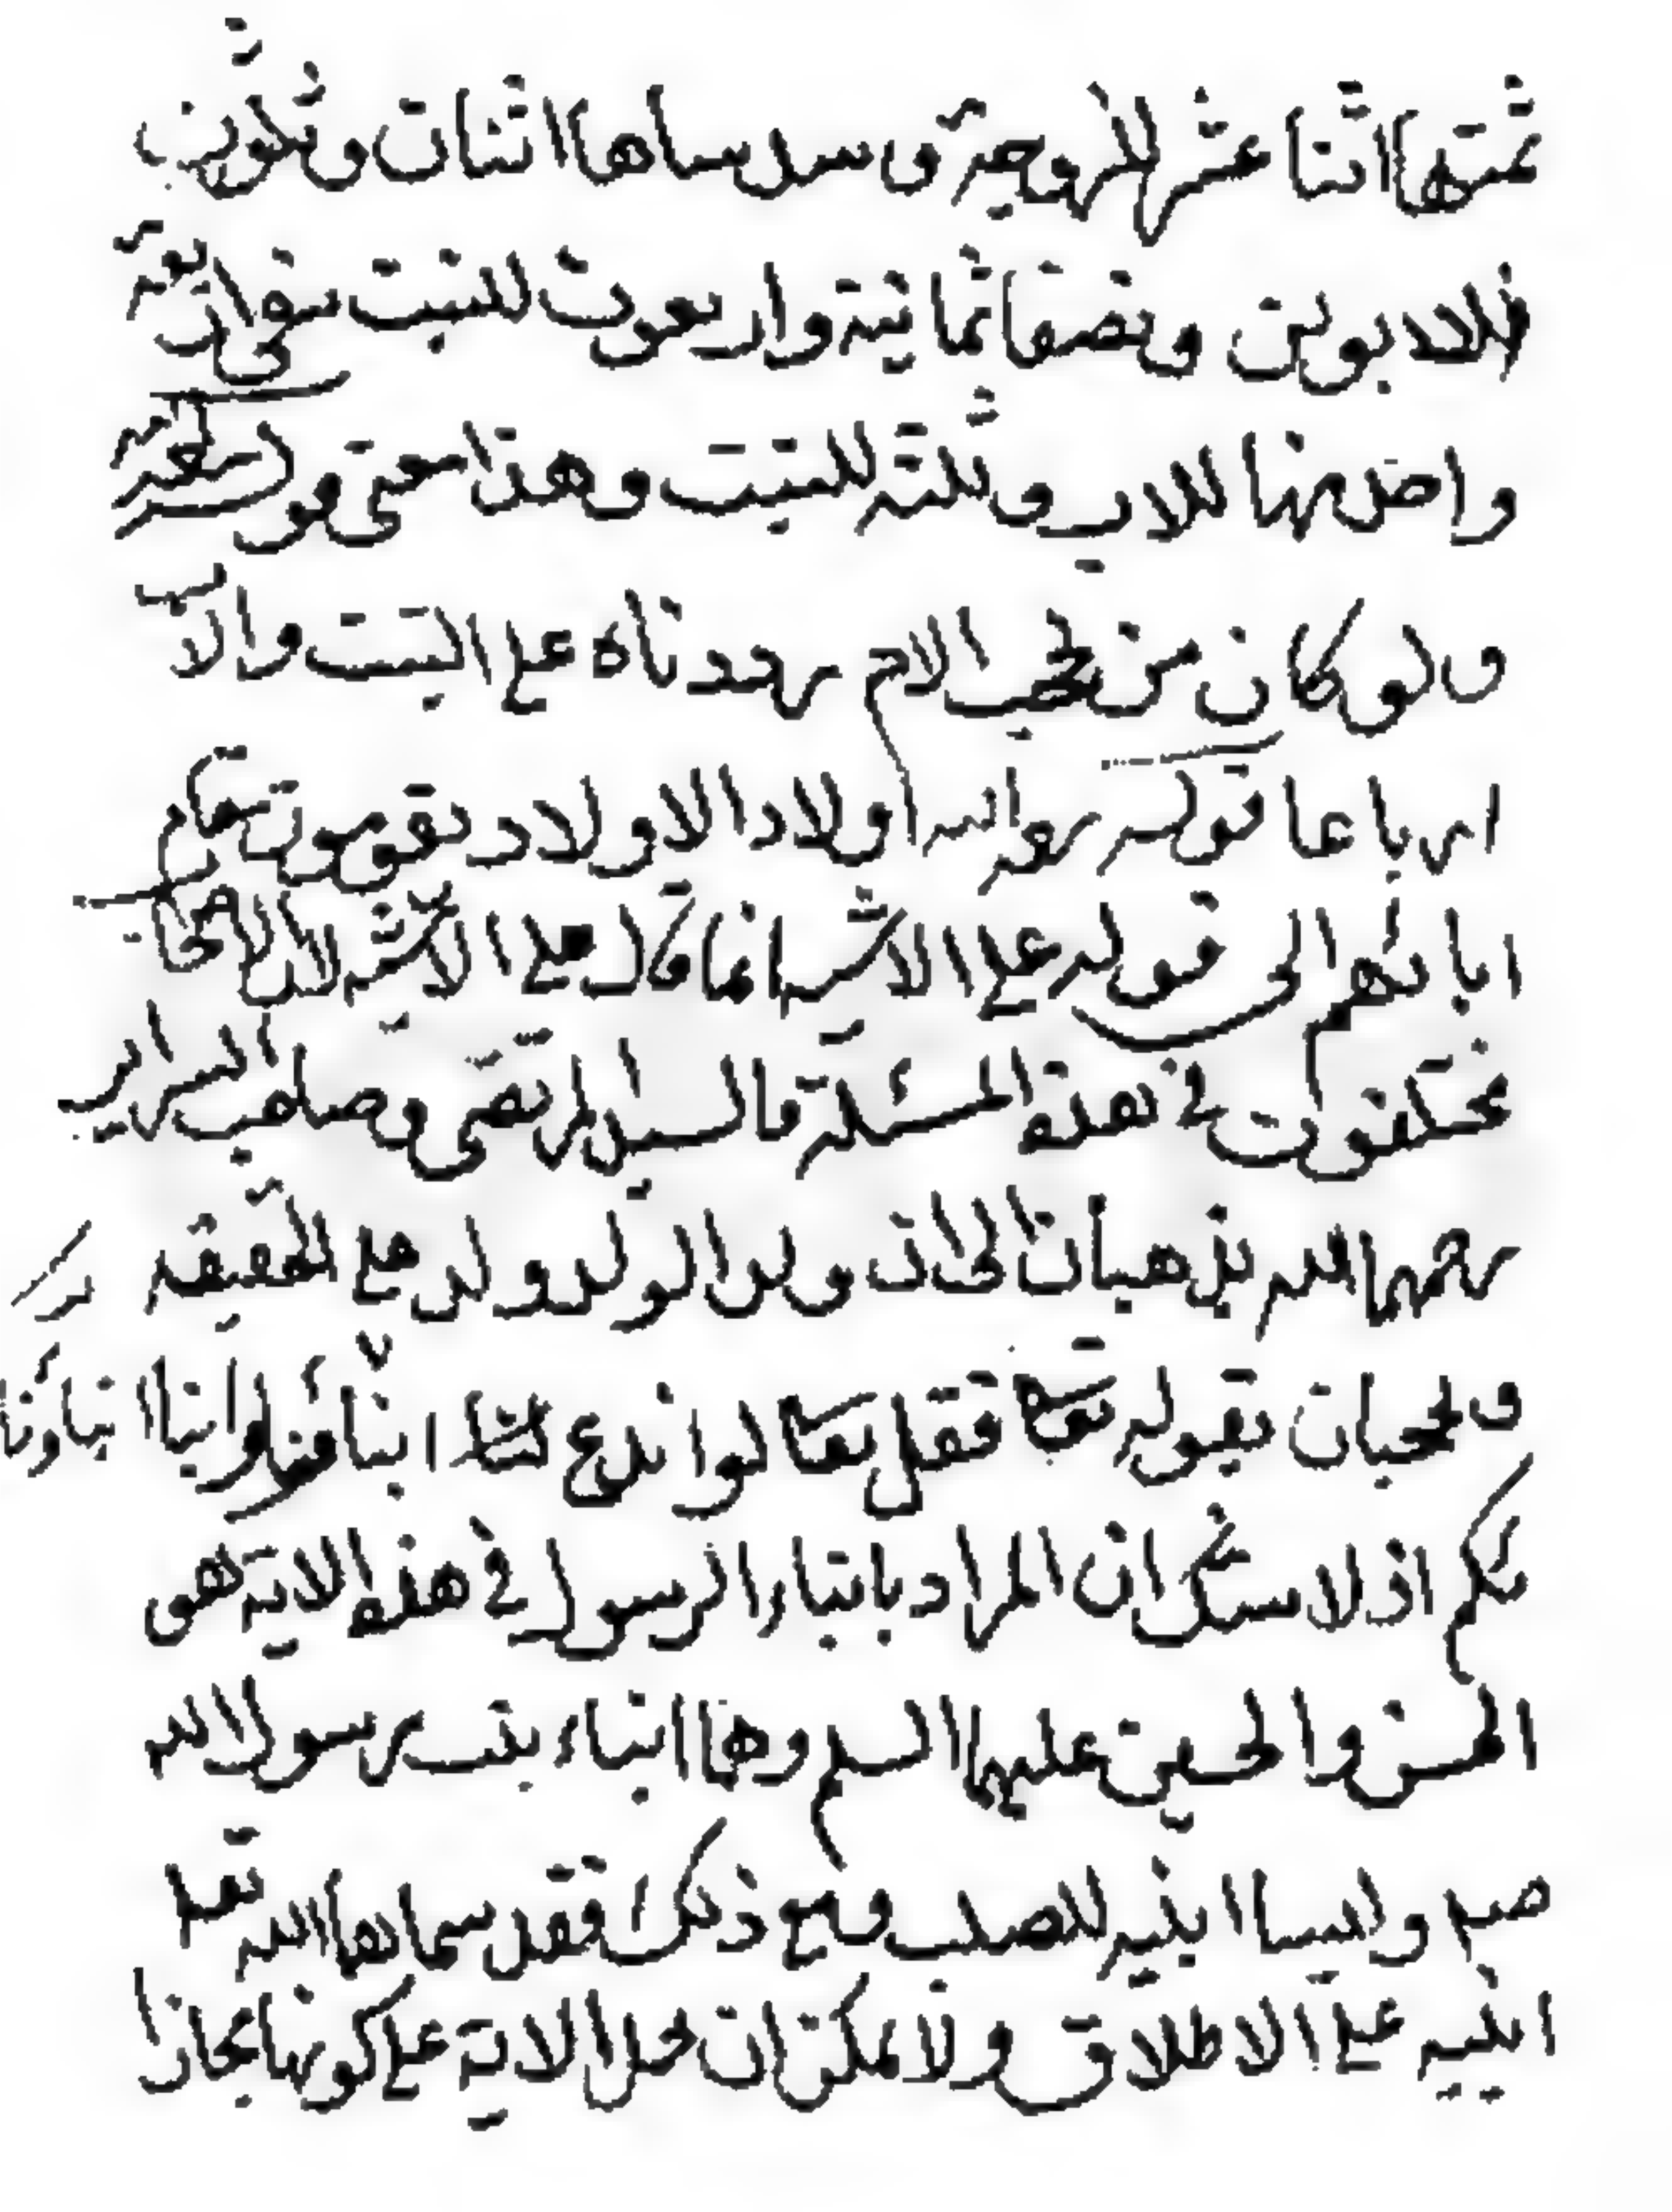 ثمنها اثنا عشر للزوجة و سدساها اثنان وثلثون
للابوين ونصفها ثمانية واربعون للبنت بقى اربعة
واحد منها للاب وثلثة للبنت وهذا معنى قوله
ولو كان من يحجب الام رددناه على البنت والاب
ارباعا قوله اولاد الاولاد يقومون مقام
ابائهم الى قوله على الاشبه انما قال على الاشبه لان
مختلفون في هذه المسئلة فالسيد المرتضى وصاحب السراير
رحمهما الله يذهبان الى ان ولد الولد ولد مع الحقيقة
ويحتجان بقوله تعالى فقل تعالوا ندع ابنائنا وابنائكم
اذ لا شك ان المراد بابناء الرسول في هذه الاية هى
الحسن والحسين عليهما السلم وهما ابناء بنت رسول الله
صلم وليسا ابنيه للصلب ومع ذلك فقد سماهما الله تعالى
ابنيه على الاطلاق ولا يمكن ان تحمل الاية على كونها مجازا